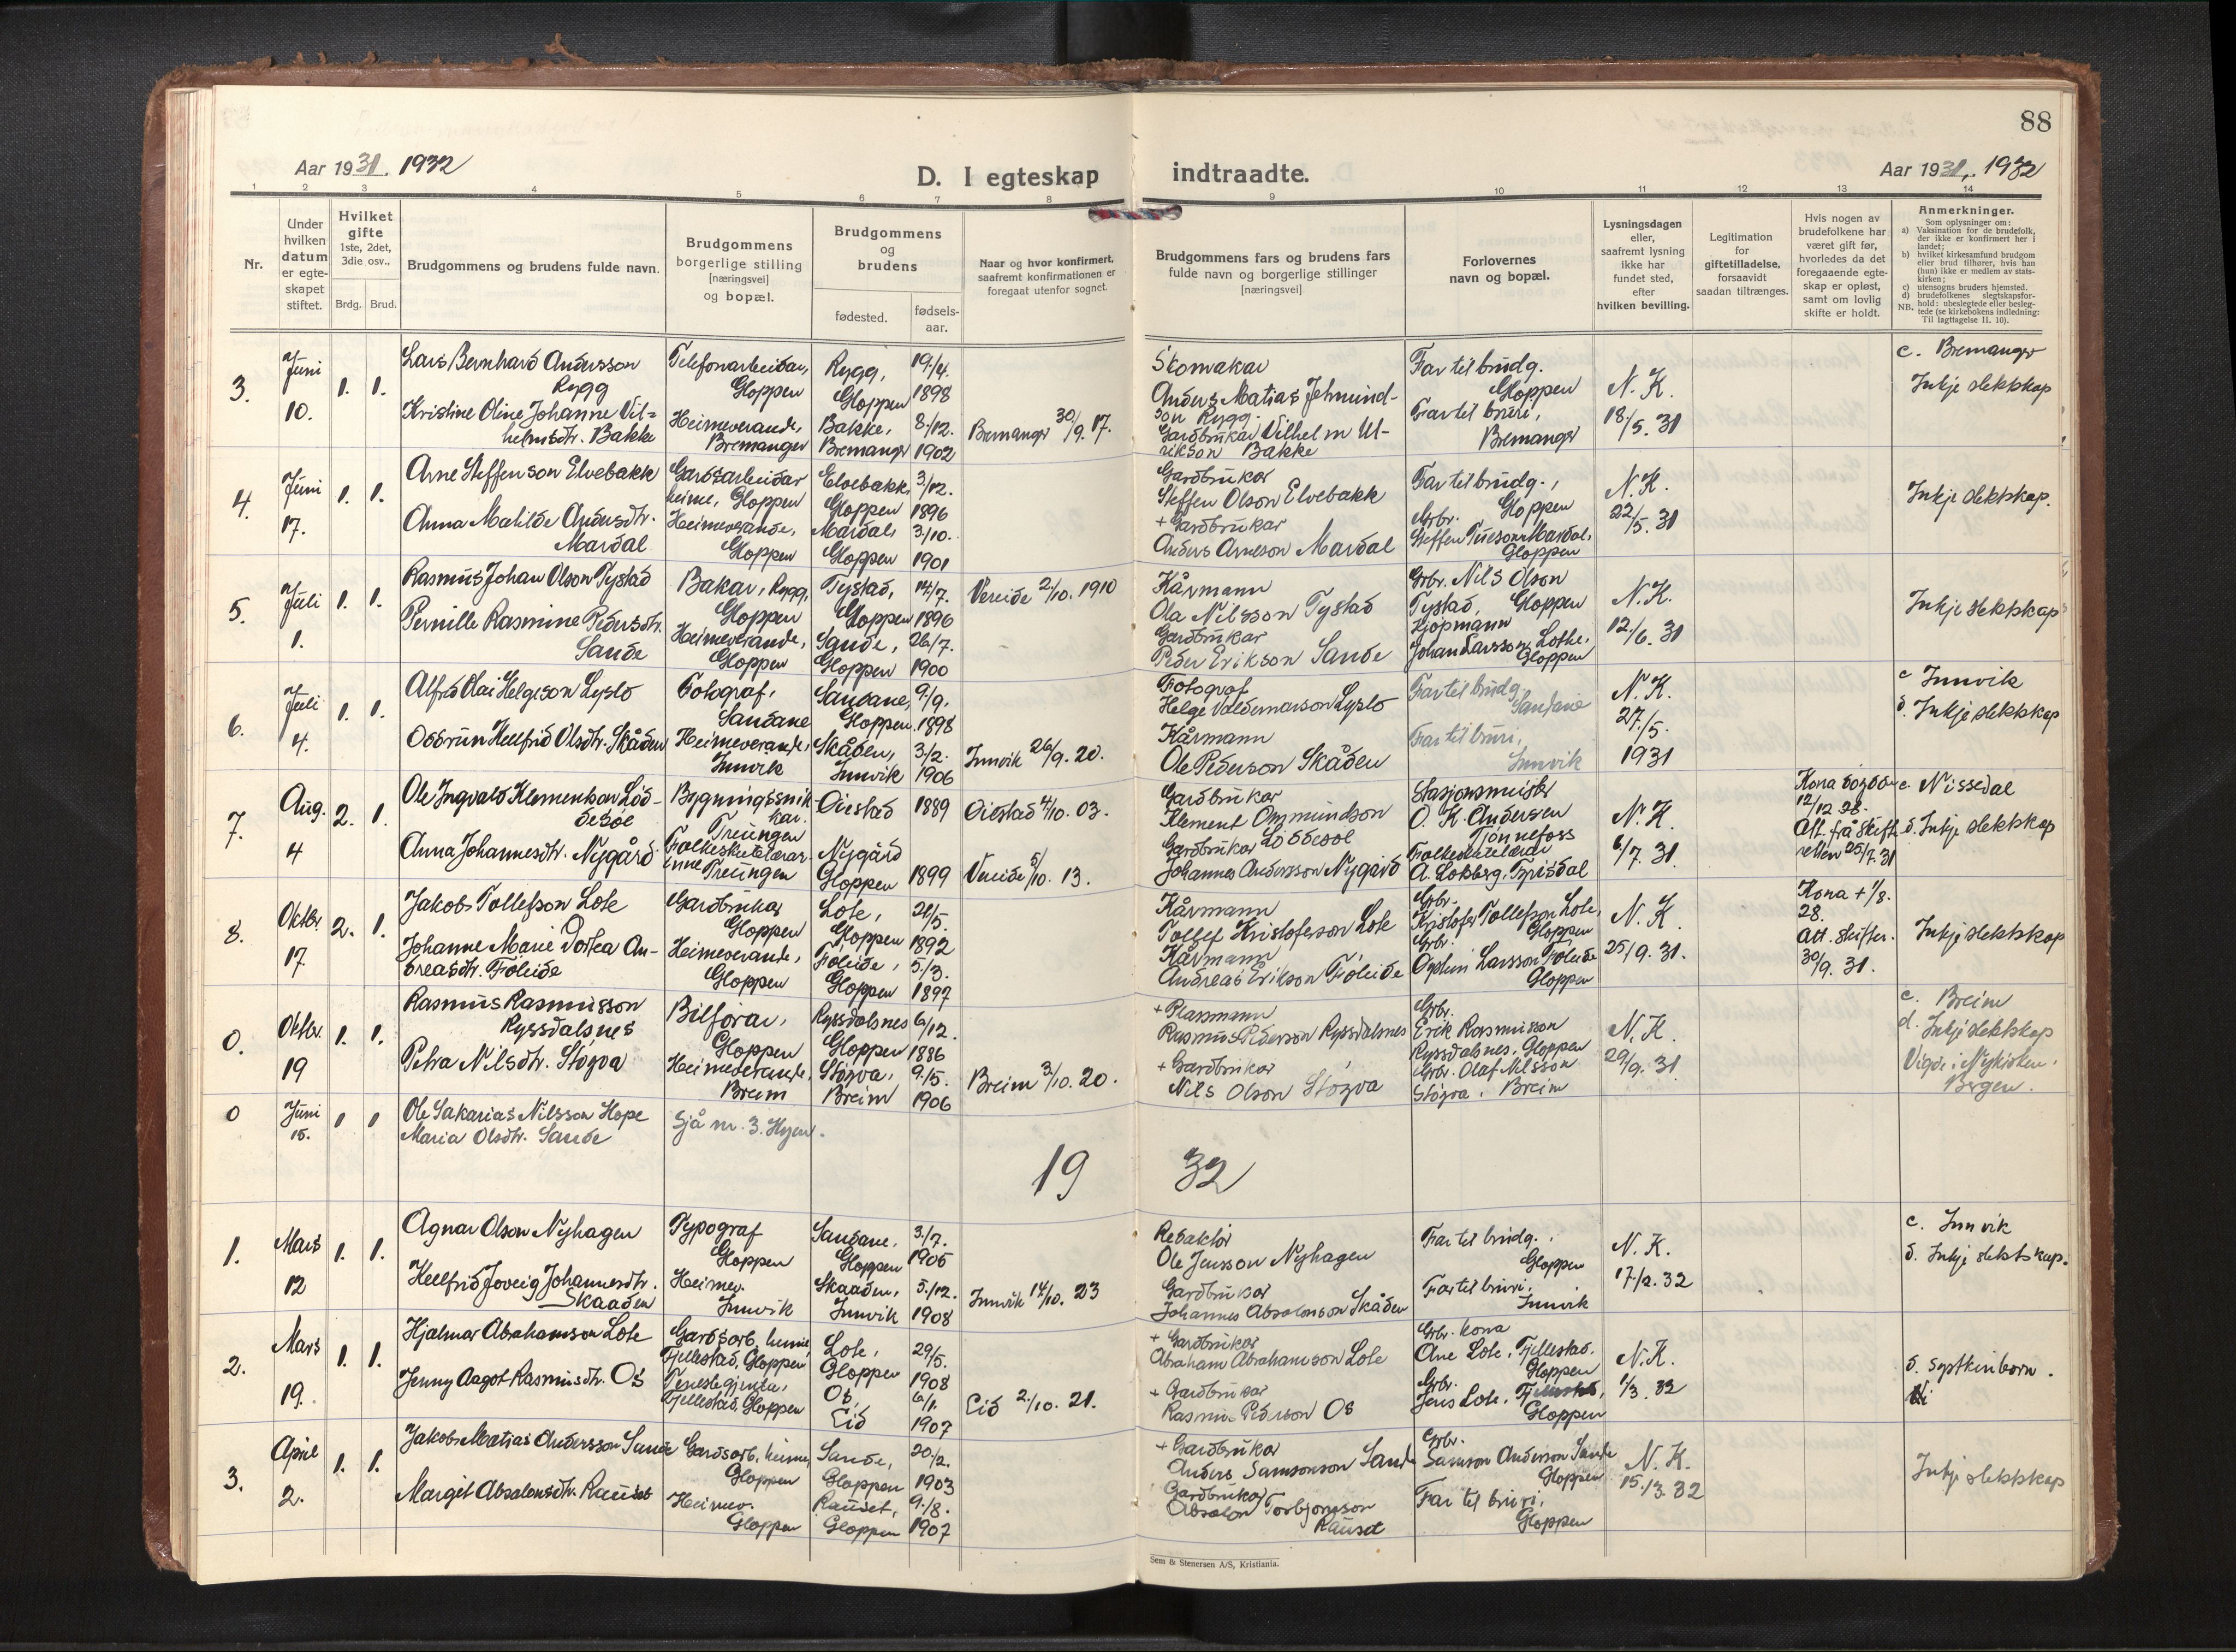 88
Aar 1931. 1932
D. I egteskap indtraadte.
Aar 1931, 1932
1 2 3 4 5 6 7 8 9 10 11 12 13 14
Nr.
Under
hvilken
datum
er egte-
skapet
stiftet.
Hvilket
gifte
1ste, 2det,
3die osv..
Brdg. Brud.
Brudgommens og brudens fulde navn.
Brudgommens
borgerlige stilling
[næringsvei]
og bopæl.
Brudgommens
og
brudens
fødested.
fødsels-
aar.
Naar og hvor konfirmert,
saafremt konfirmationen er
foregaat utenfor sognet.
Brudgommens fars og brudens fars
fulde navn og borgerlige stillinger
[næringsvei]
Forlovernes
navn og bopæl.
Lysningsdagen
eller,
saafremt lysning
ikke har
fundet sted,
efter
hvilken bevilling.
Legitimation
for
giftetilladelse,
forsaavidt
saadan tiltrænges.
Hvis nogen av
brudefolkene har
været gift før,
hvorledes da det
foregaaende egte-
skap er opløst,
samt om lovlig
skifte er holdt.
Anmerkninger.
Som oplysninger om:
a) Vaksination for de brudefolk,
der ikke er konfirmert her i
landet;
b) hvilket kirkesamfund brudgom
eller brud tilhører, hvis han
(hun) ikke er medlem av stats-
kirken;
c) utensogns bruders hjemsted.
d) brudefolkenes slegtskapsfor-
hold: ubeslegtede eller besleg-
NB. tede (se kirkebokens indledning:
Til iagttagelse II. 10).
3.
Juni
10.
1. 1.
Lars Bernhard Andersson
Rygg
Kristine Oline Johanne Vil-
helmsdtr. Bakke
Telefonarbeidar,
Gloppen
Heimeverande,
Bremanger
Rygg,
Gloppen
Bakke,
Bremangr
19/4.
1898
8/12.
1902
Bremangr 30/9. 17.
Skomakar
Anders Matias Jetmund-
son Rygg.
Gardbrukar Vilhelm Ul-
rikson Bakke
Far til brudg.
Gloppen
Far til bruri,
Bremangr
N. K.
18/5. 31
c. Bremangr
Inkje slektskap
4.
Juni
17.
1. 1.
Arne Steffenson Elvebakk
Anna Matilde Andersdtr.
Mardal
Gardsarbeidar
heime, Gloppen
Heimeverande,
Gloppen
Elvebakk,
Gloppen
Mardal,
Gloppen
3/12.
1896
3/10.
1901
Gardbrukar
Steffen Olson Elvebakk
+ Gardbrukar
Anders Arneson Mardal
Far til brudg.,
Gloppen
Grbr.
Steffen Mardal,
Gloppen
N. K.
22/5. 31
Inkje slektskap.
5.
Juli
1.
1. 1.
Rasmus Johan Olson Tystad
Pernille Rasmine Pedersdtr.
Sande
Bakar, Rygg,
Gloppen
Heimeverande,
Gloppen
Tystad,
Gloppen
Sande,
Gloppen
14/7.
1896
26/7.
1900
Vereide 2/10. 1910
Kårmann
Ola Nilsson Tystad
Gardbrukar
Peder Erikson Sande
Grbr. Nils Olson
Tystad, Gloppen
Kjøpmann
Johan Larsson Lothe.
Gloppen
N. K.
12/6. 31
Inkje slektskap
6.
Juli
4.
1. 1.
Alfred Olai Helgeson Lyslo
Oddrun Hellfrid Olsdtr. Skåden
Fotograf,
Sandane
Heimeverande,
Innvik
Sandane,
Gloppen
Skåden,
Innvik
9/9.
1898
3/2.
1906
Innvik 26/9. 20.
Fotograf
Helge Valdemarson Lyslo
Kårmann
Ole Pederson Skåden
Far til brudg.
Sandane
Far til bruri,
Innvik
N. K.
27/5.
1931
c Innvik
d. Inkje slektskap
7.
Aug.
4
2. 1.
Ole Ingvald Klementson Löd-
desöl
Anna Johannesdtr. Nygård
Bygningssnik-
kar.
Treungen
Folkeskulelærar-
inne Treungen
Oiestad
Nygård
Gloppen
1889
1899
Oiestad 4/10. 03.
Vereide 5/10. 13.
Gardbrukar
Klement Ommundson
Gardbrukar Löddesöl
Johannes Andersson Nygård
Stasjonsmeister
O. K. Andersen
Tjønnefoss
Folkeskulelærar
A. Loksberg,
N. K.
6/7. 31.
Kona
12/12 28.
Att. frå skift-
retten 25/7. 31
c. Nissedal
d. Inkje slektskap
8.
Oktbr.
17.
2. 1.
Jakob Tollefson Lote
Johanne Marie Dortea An-
dreasdtr. Föleide
Gardbrukar
Gloppen
Heimeverande,
Gloppen
Lote,
Gloppen
Föleide,
Gloppen
21/5.
1892
5/3.
1897
Kårmann
Tollef Kristoferson Lote
Kårmann
Andreas Erikson Föleide
Grbr.
Kristofer Tollefson Lote,
Gloppen
Grbr.
Larsson Föleide
Gloppen
N. K.
25/9. 31.
Kona + 1/8.
28.
Att. skifter.
30/9. 31.
Inkje slektskap
0.
Oktbr.
19
1. 1.
Rasmus Rasmusson
Ryssdalsnes
Petra Nilsdtr. Stözva
Bilförar,
Gloppen
Heimeverande,
Breim
Ryssdalsnes
Gloppen
Stözva,
Breim
6/12.
1886
9/5.
1906
Breim 3/10. 20.
+ Plassmann
Rasmus Pederson Ryssdalsnes
+ Gardbrukar
Nils Olson Stözva
Grbr.
Erik Rasmusson
Ryssdalsnes, Gloppen
Grbr. Olaf Nilsson
Stözva. Breim
N. K.
29/9. 31
c. Breim
d. Inkje slektskap
Vigde i Nykirken.
Bergen.
0
Juni
15.
1 1
Ole Sakarias Nilsson Hope
Maria Olsdtr. Sande
Sjå nr. 3. Hyen.
19 32
1.
Mars
12
1. 1.
Agnar Olson Nyhagen
Hellfrid Joveig Johannesdtr.
Skaaden
Typograf
Gloppen
Heimev.
Innvik
Sandane.
Gloppen
Skaaden,
Innvik
3/7.
1905
5/12.
1908
Innvik 14/10. 23
Redaktör
Ole Jensson Nyhagen
Gardbrukar
Johannes Absalonson Skåden
Far til brudg.,
Gloppen
Far til bruri.
Innvik
N. K.
17/2. 32
c. Innvik
d. Inkje slektskap.
2.
Mars
19.
1. 1.
Hjalmar Abrahamson Lote
Jenny Aagot Rasmusdtr. Os
Gardsarb. heime,
Fjellestad, Gloppen
Tenestegjenta,
Fjellestad, Gloppen
Lote,
Gloppen
Os,
Eid
29/5.
1908
6/1.
1907
Eid 2/10. 21.
+ Gardbrukar
Abraham Abrahamson Lote
+ Gardbrukar
Rasmus Pederson Os
Grbr. kona
Ane Lote, Fjellestad.
Gloppen
Grbr.
Jens Lote,
Gloppen
N. K.
1/3. 32
d. Systkinborn.
3.
April
2.
1. 1.
Jakob Matias Andersson Sande
Margit Absalonsdtr. Rauset
Gardsarb. heime,
Gloppen
Heimev.
Gloppen
Sande,
Gloppen
Rauset,
Gloppen
20/2.
1903
9/8.
1907
+ Gardbrukar
Anders Samsonson Sande
Gardbrukar
Absalon Torbjørnson
Rauset
Grbr.
Samson Anderson Sande
Gloppen
Far til bruri,
Gloppen
N. K.
15/3. 32
Inkje slektskap
Sem & Stenersen A/S, Kristiania.